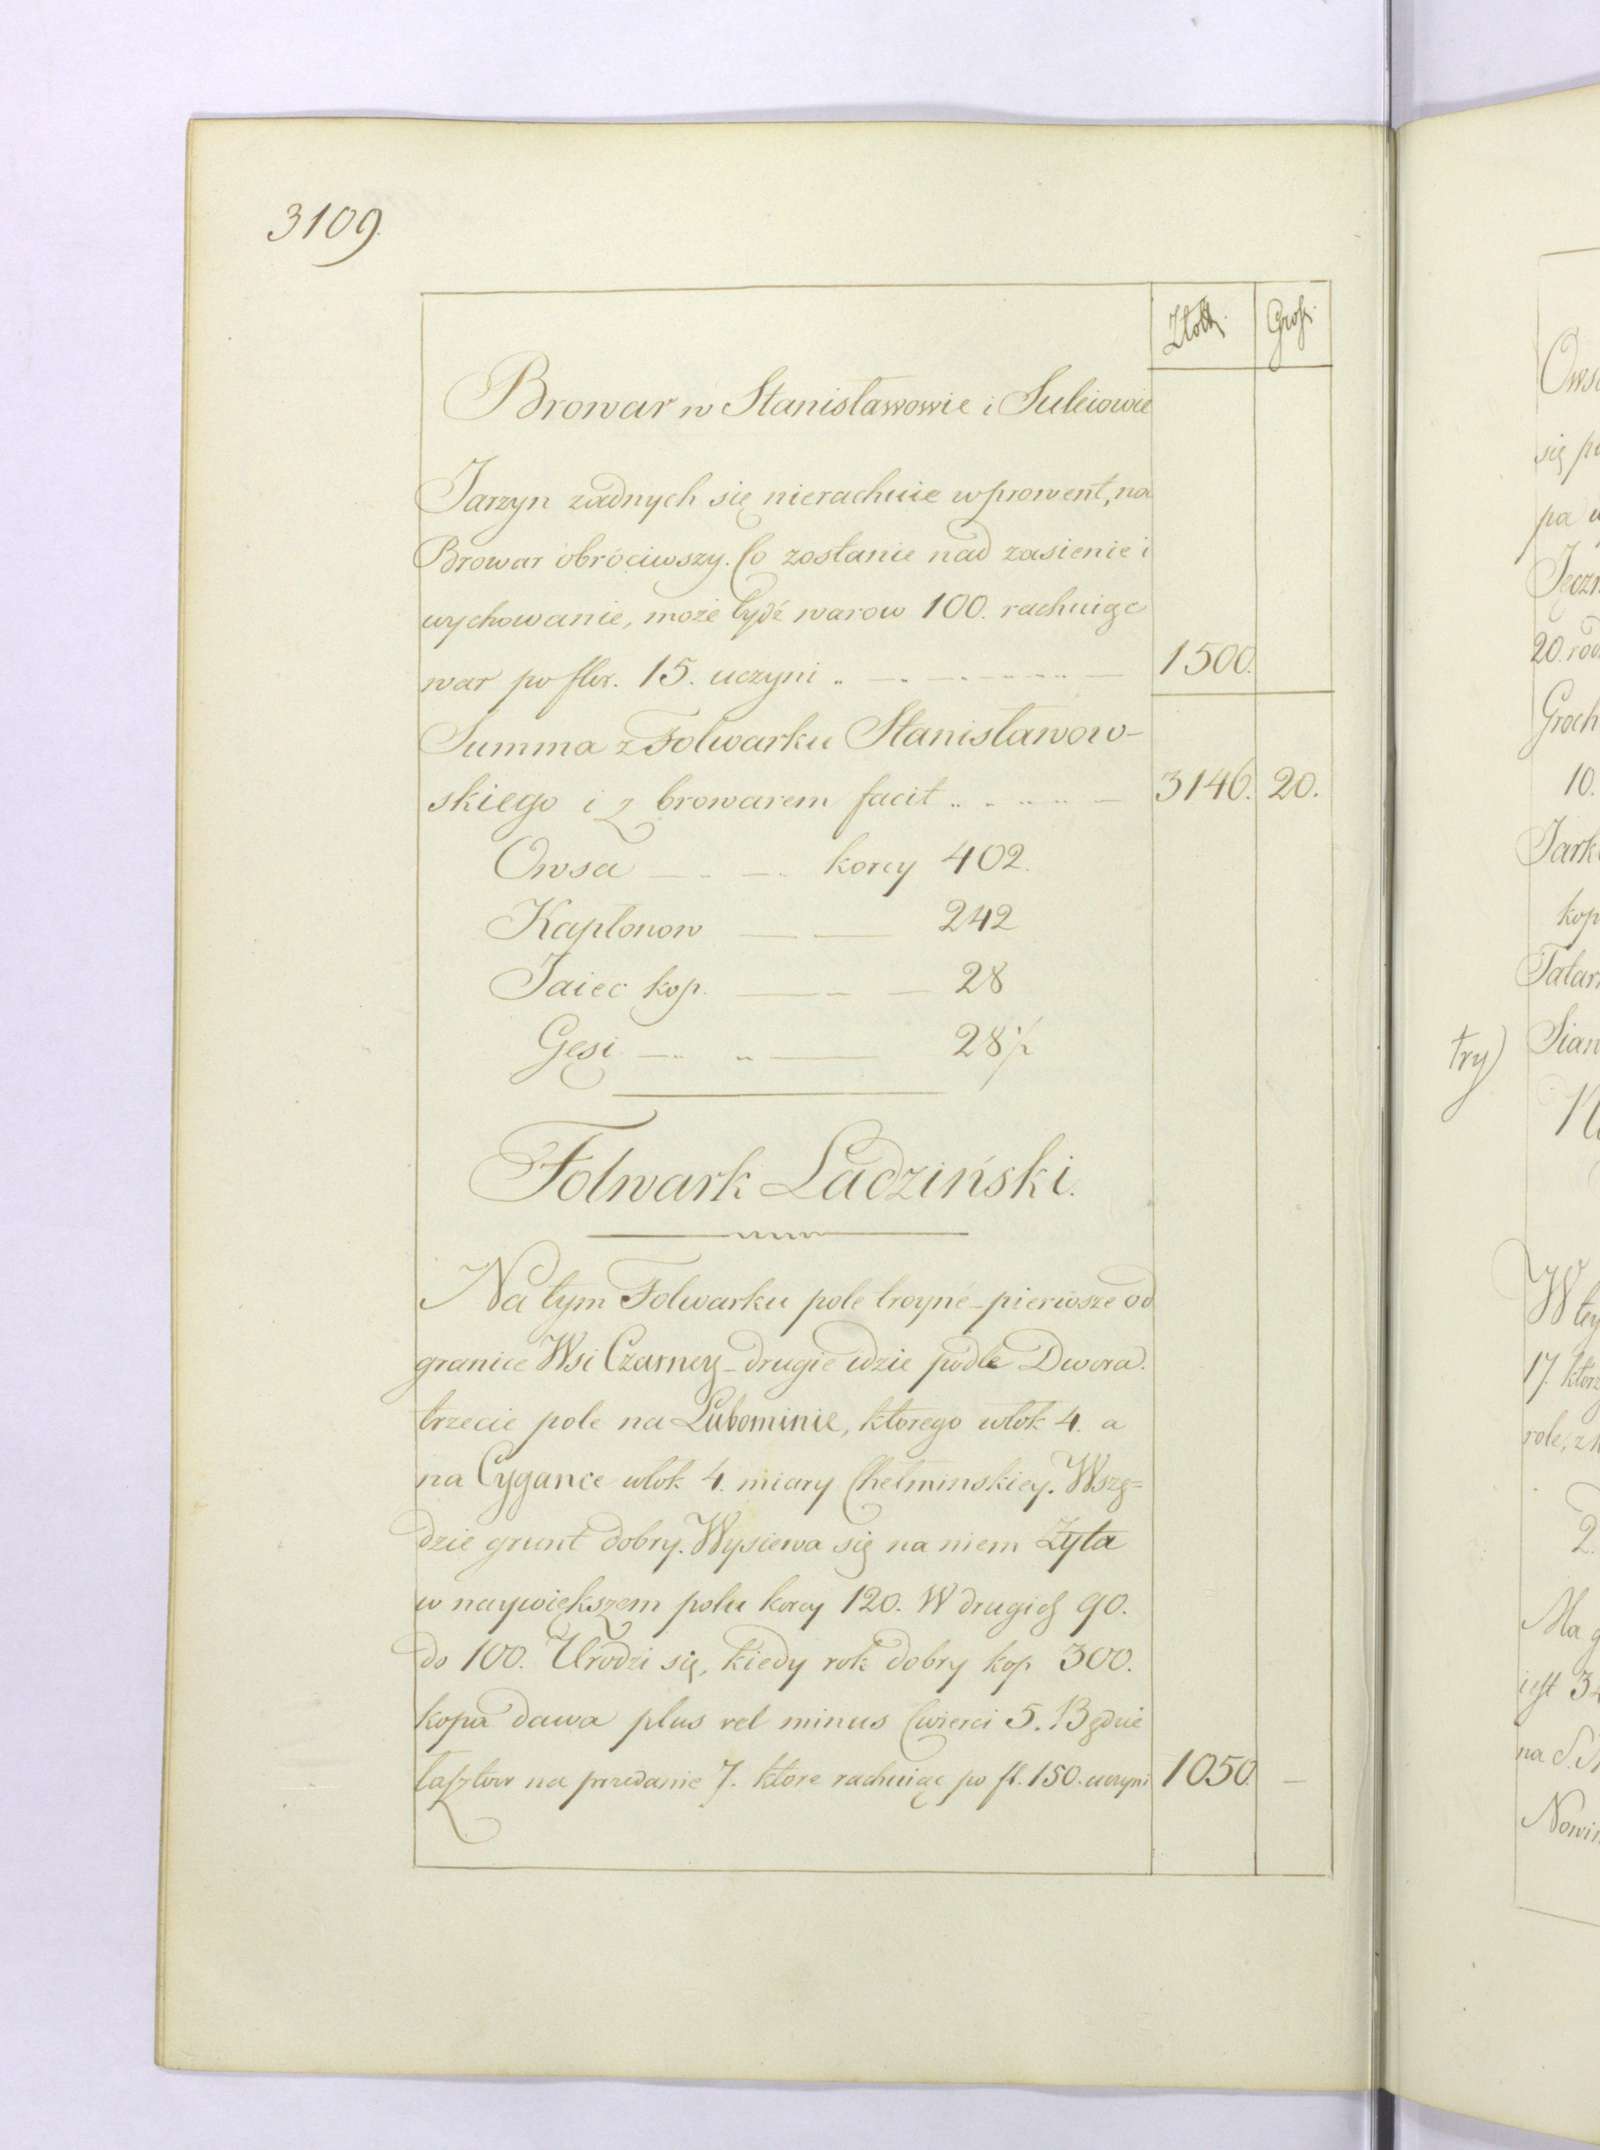 3109.
Złott. Grosz.
Browar w Stanisławowie i Suleiowie
Jarzyn żadnych się nierachuie w prowent, na
Browar obróciwszy. Co zostanie nad zasienie i
wychowanie, może bydź warow 100. rachuiąc
war po flor. 15. uczyni 1500.
Summa z Folwarku Stanisławow-
skiego i z browarem facit 3146. 20.
Owsa korcy 402.
Kapłonow 242
Jaiec kop. 28
Gęsi 28 1/2
Folwark Ladziński.
Na tym Folwarku pole troyne - pierwsze od
granice Wsi Czarney - drugie idzie podle Dwora.
trzecie pole na Lubominie, ktorego włok 4. a
na Cygance włok 4. miary Chełminskiey. Wszę=
dzie grunt dobry. Wysiewa się na niem Żyta
w naywiększem polu korcy 120. W drugich 90.
do 100. Urodzi się, kiedy rok dobry kop 300.
kopa dawa plus vel minus Cwierci 5. Będzie
łasztow na przedanie 7. ktore rachuiąc po fl. 150. uczyni 1050. —
Owsa
się
pa
20.
Groch
10.
kop
Tatar
try)
W tey
17.
role,
2.
Ma
iest
na